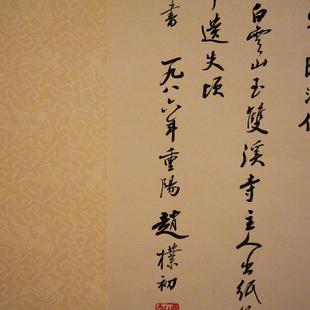 白雲山至雙溪寺主人出紙
遺失頃
書 一九八六年重陽趙樸初